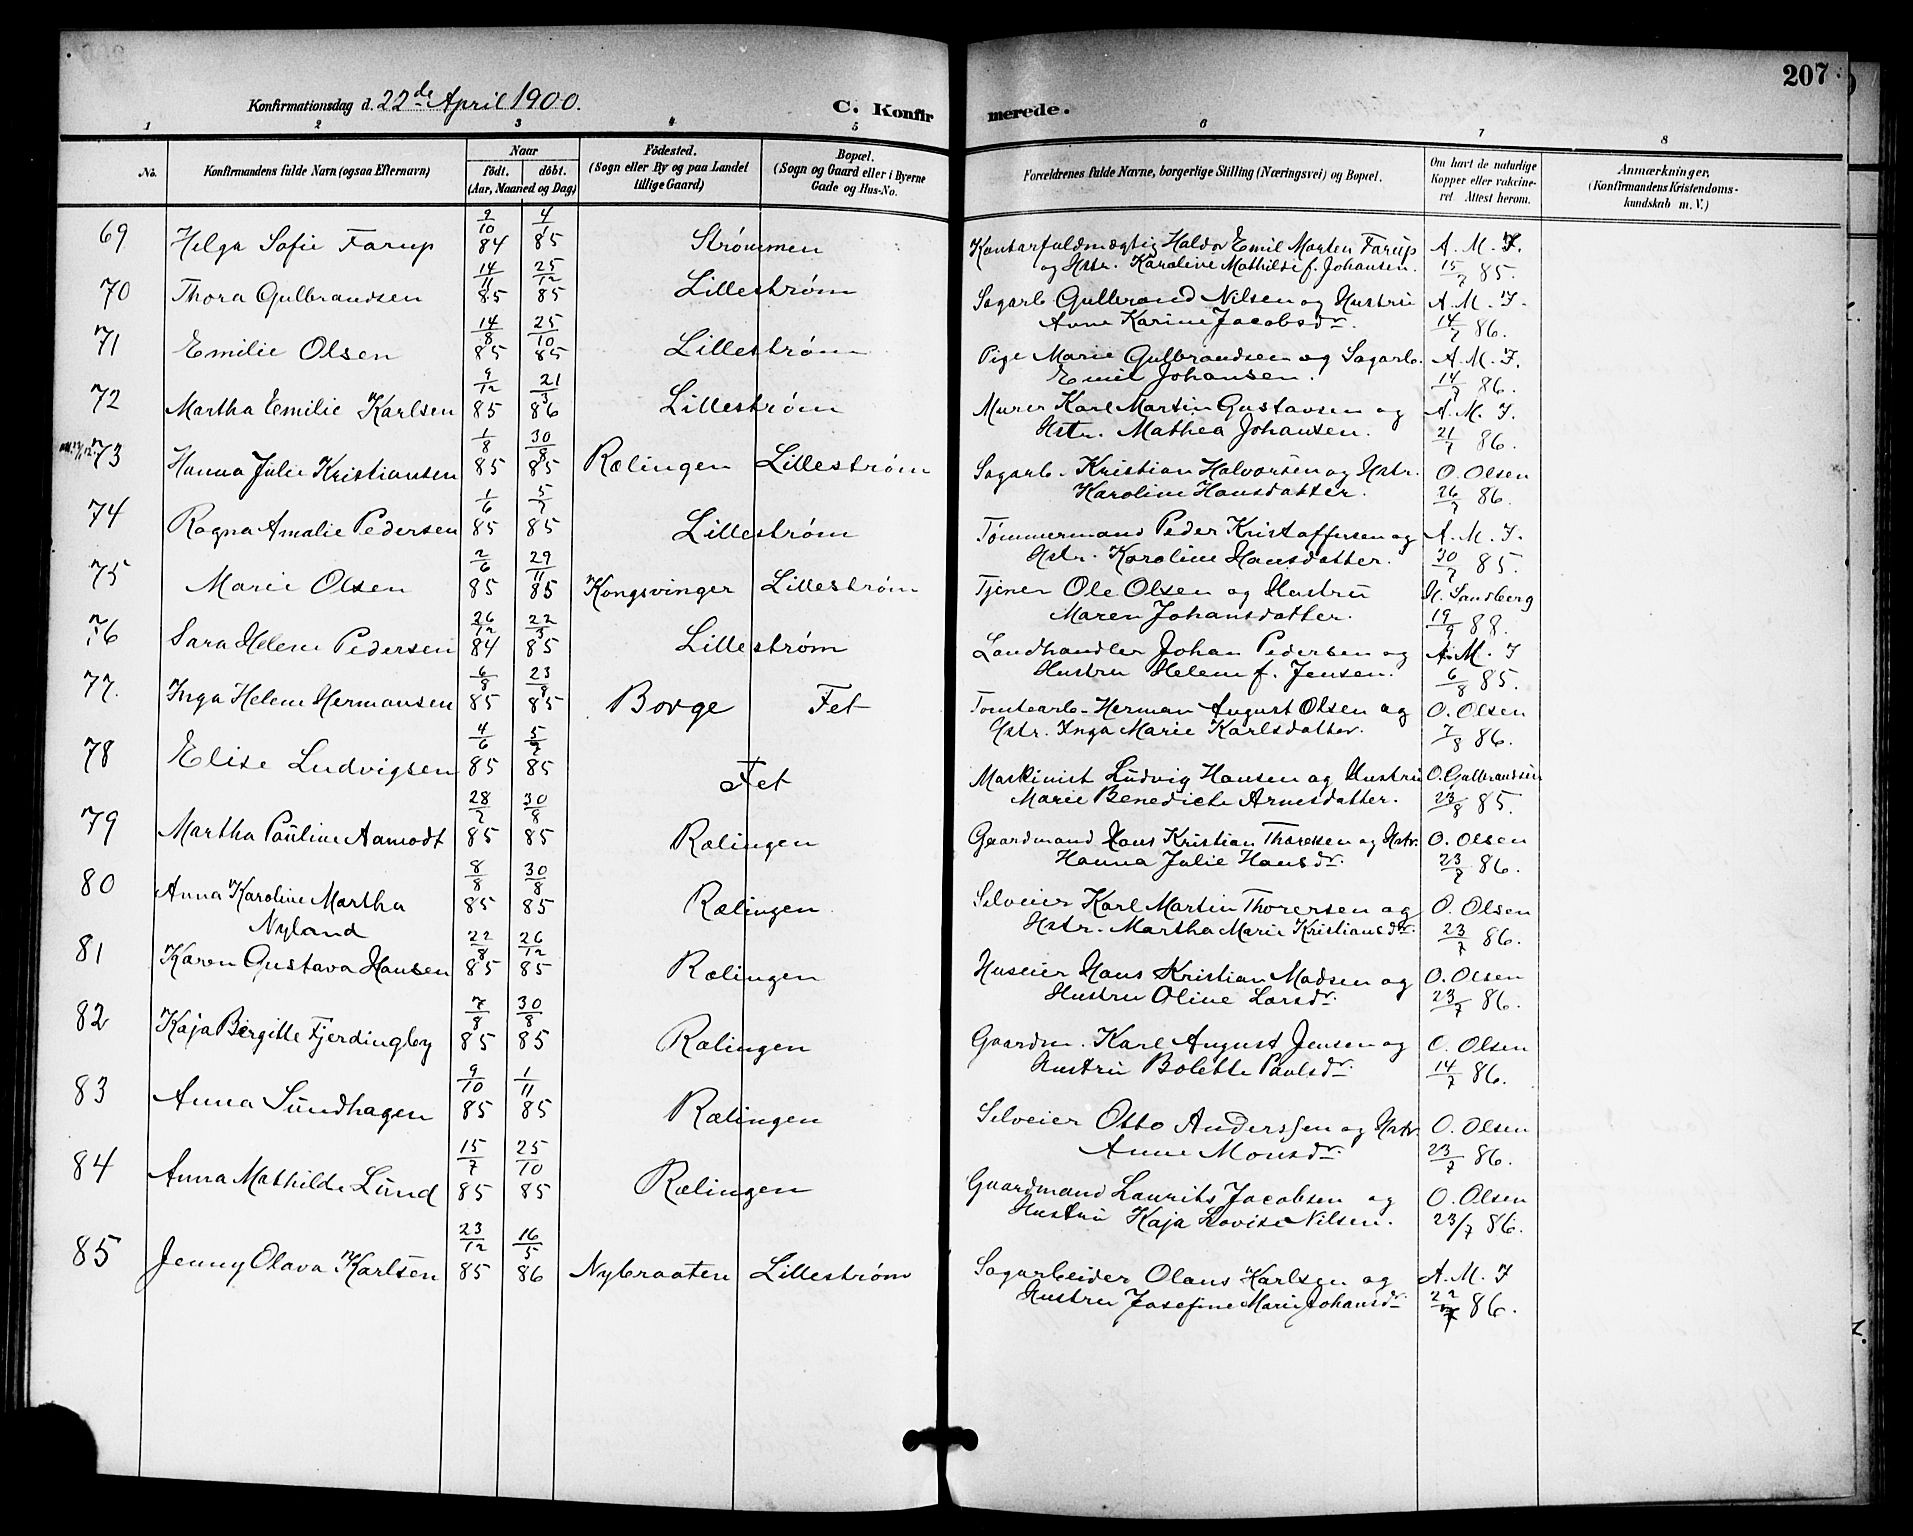 207
Konfirmationsdag d. 22de April 1900.
C. Konfirmerede.
1 2 3 4 5 6 7 8
No.
Konfirmandens fulde Navn (ogsaa Efternavn)
Naar
födt. döbt.
(Aar, Maaned og Dag)
Födested.
(Sogn eller By og paa Landet
tillige Gaard)
Bopæl.
(Sogn og Gaard eller i Byerne
Gade og Hus-No.
Forældrenes fulde Navne, borgerlige Stilling (Næringsvei) og Bopæl.
Om havt de naturlige
Kopper eller vakcine-
ret Attest herom.
Anmærkninger,
(Konfirmandens Kristendoms-
kundskab m. V.)
69 Helga Sofie Farup 9/10 84 4/1 85 Strömmen Kontorfuldmægtig Haldor Emil Morten Farup A. M. F.
og Hstr. Karoline Mathilde f. Johansen. 15/7 85.
70 Thora Gulbrandsen 14/11 85 25/12 85 Lillestrøm Sagarb Gulbrand Nilsen og Hustru A. M. F.
Anne Karine Jacobsdr. 14/7 86.
71 Emilie Olsen 14/8 85 25/10 85 Lillestrøm Pige Marie Gulbrandsen og Sagarb. A. M. F.
Emil Johansen. 14/7 86.
72 Martha Emilie Karlsen 9/12 85 21/3 86 Lillestrøm Murer Karl Martin Gustavsen og A. M. F.
Hstr. Mathea Johansen. 21/7 86.
73 Hanna Julie Kristiansen 1/8 85 30/8 85 Rælingen Lillestrøm Sagarb. Kristian Halvorsen og Hstr. O. Olsen
Karoline Hansdatter. 26/7 86.
74 Ragna Amalie Pedersen 1/6 85 5/7 85 Lillestrøm Tømmermand Peder Kristoffersen og A. M. F.
Hstr. Karoline Hansdatter. 30/7 85.
75 Marie Olsen 2/6 85 29/11 85 Kongsvinger Lillestrøm Tjener Ole Olsen og Hustru H. Sandberg
Maren Johansdatter. 19/9 88.
76 Sara Helene Pedersen 26/12 84 22/3 85 Lillestrøm Landhandler Johan Pedersen og A. M. F
Hustru Helene f. Jensen. 6/8 85.
77. Inga Helene Hermansen 6/8 85 23/8 85 Borge Fet Tomtearb. Herman August Olsen og O. Olsen
Hstr. Inga Marie Karlsdatter. 7/8 86.
78 Elise Ludvigsen 4/6 85 5/7 85 Fet Maskinist Ludvig Hansen og Hustru O. Gulbrandsen
Marie Benedicte Arnesdatter. 23/8 85.
79 Martha Pauline Aamodt 28/7 85 30/8 85 Rælingen Gaardmand Hans Kristian Thoresen og Hstr. O. Olsen
Hanna Julie Hansdr. 23/7 86.
80 Anna Karoline Martha 8/8 85 30/8 85 Rælingen Selveier Karl Martin Thoresen og O. Olsen
Nyland Hstr. Martha Marie Kristiansdr. 23/7 86.
81 Karen Gustava Hansen 22/8 85 26/12 85 Rælingen Huseier Hans Kristian Madsen og O. Olsen
Hustru Oline Larsdr. 23/7 86.
82 Kaja Birgitte Fjerdingby 7/8 85 30/8 85 Rælingen Gaardm. Karl August Jensen og O. Olsen
Hustru Bolette Paulsdr. 14/7 86.
83 Anna Sundhagen 9/10 85 1/11 85 Rælingen Selveier Otto Anderssen og Hstr. O. Olsen
Anne Monsdr. 23/7 86.
84 Anna Mathilde Lund 15/7 85 25/10 85 Rælingen Gaardmand Laurits Jacobsen og O. Olsen
Hustru Kaja Lovise Nilsen. 23/7 86.
85 Jenny Olava Karlsen 23/12 85 16/5 86 Nybraaten Lillestrøm Sagarbeider Olaus Karlsen og A. M. F
Hustru Josefine Marie Johansdr. 22/7 86.